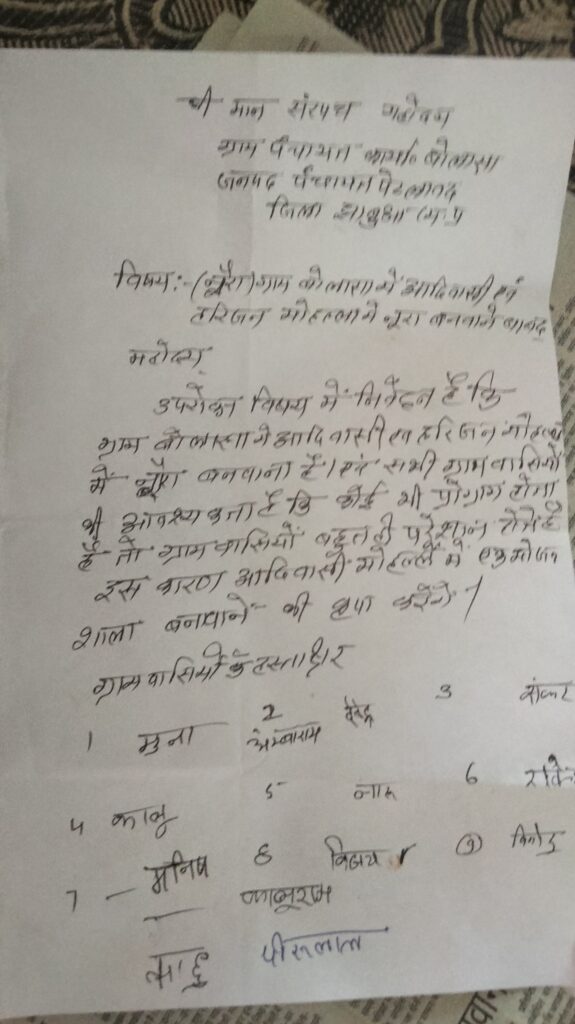 श्री मान संरपंच महोदय
ग्राम पंचायत बोलासा
जनपद पंचायत पेटलावद
जिला झाबुआ म.प्र
विषय:- ग्राम बोलासा में आदिवासी एवं
हरिजन मोहल्ला में बनवाने बाबद
महोदय,
उपरोक्त विषय में निवेदन है कि
ग्राम बोलासा में आदिवासी एवं हरिजन मोहल्ले
में बनवाना है। एवं सभी ग्रामवासियों
की आवश्यकता है कि कोई भी प्रोग्राम होता
है तो ग्रामवासियों बहुत ही परेशान होते है
इस कारण आदिवासी मोहल्ले में एक भोजन
शाला बनवाने की कृपा करेंगे।
ग्रामवासियों के हस्ताक्षर
1 मुना 2 अम्बाराम 3 शंकर
4 कालु 5 6
7 - मनिष 8 विजय 9 विनोद
कालुराम
पीरूलाल